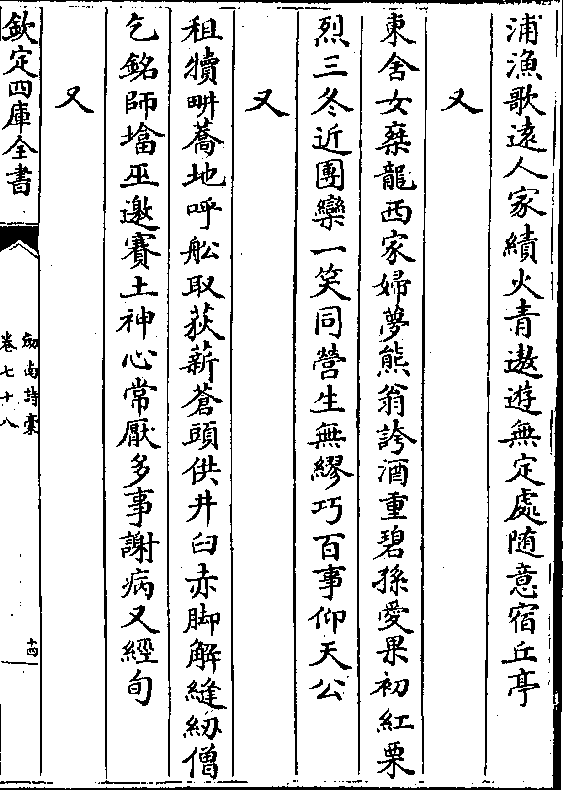 浦漁歌逺人家績火青遨遊無定處随意宿丘亭
又
東舍女乗龍西家婦夢熊翁誇酒重碧孫愛果初紅栗
烈三冬近團欒一笑同營生無繆巧百事仰天公
又
租犢畊蕎地呼舩取荻薪蒼頭供井臼赤脚解縫紉僧
乞銘師㙮巫邀賽土神心常厭多事謝病又經旬
又
欽定四庫全書
劒南詩藁
卷七十八
十四